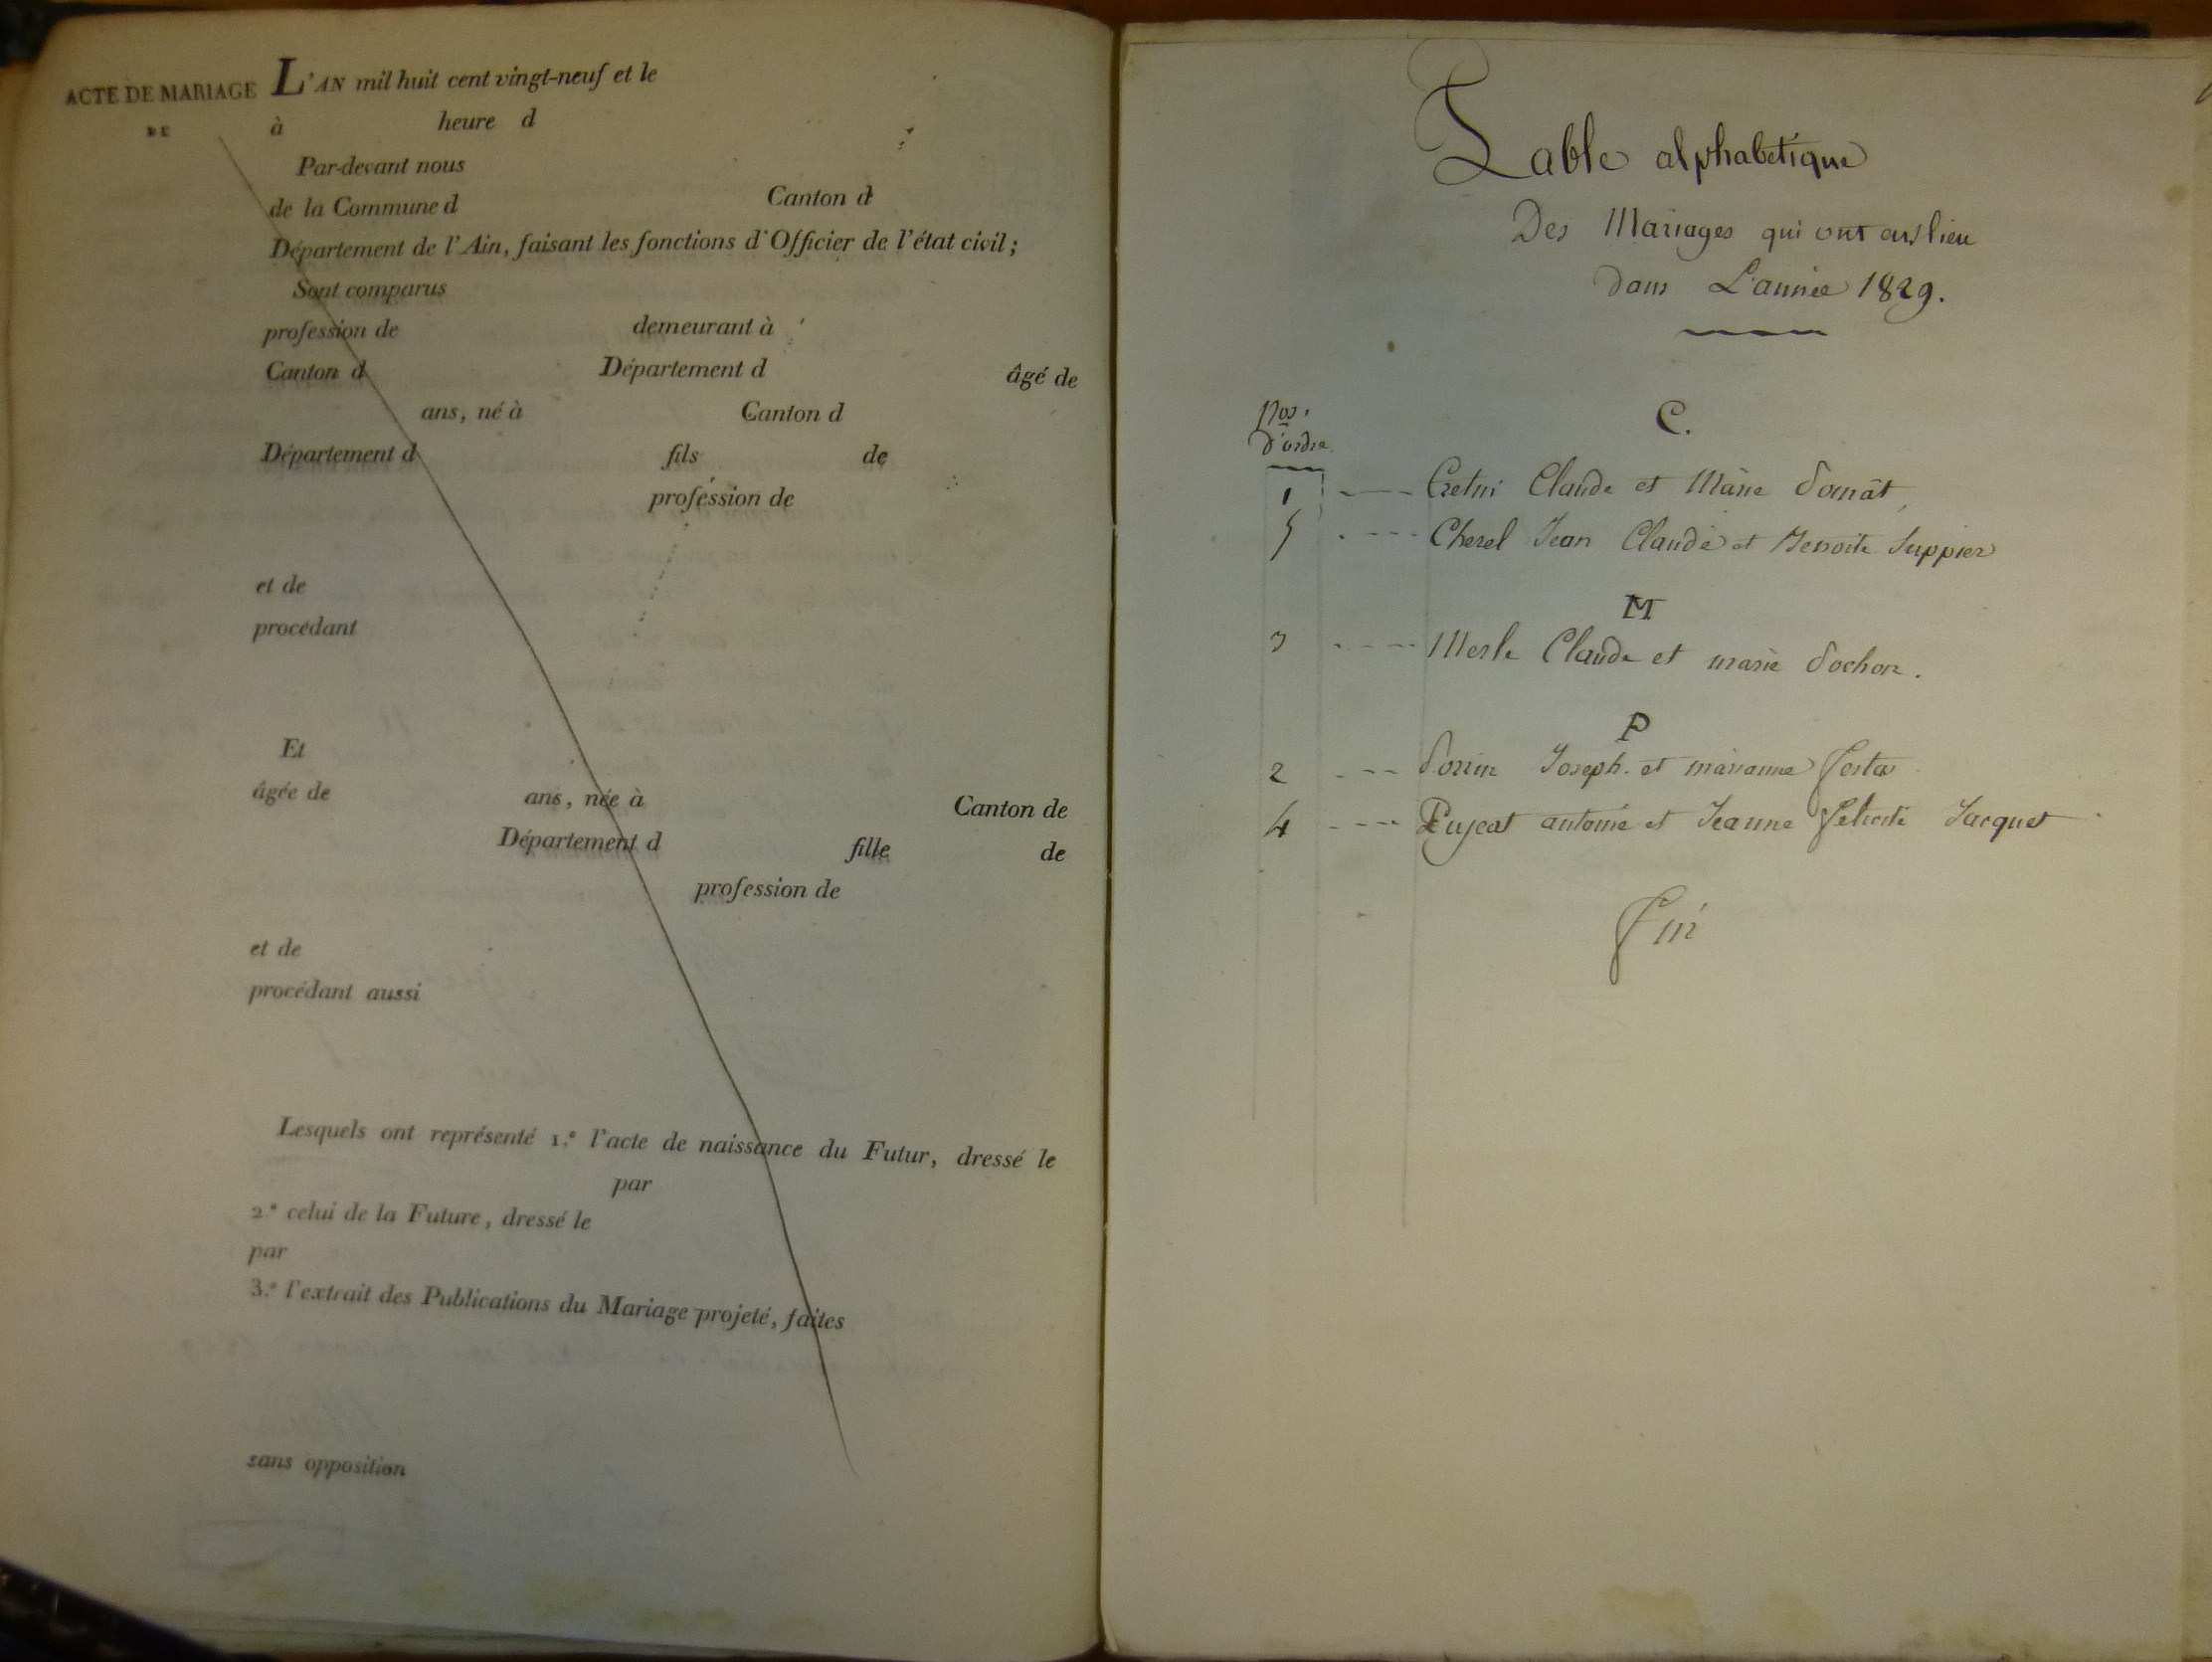 ACTE DE MARIAGE
DE
L'AN mil huit cent vingt-neuf et le
à heure d
Par-devant nous
de la Commune d Canton d
Département de l'Ain, faisant les fonctions d'Officier de l'état civil;
Sont comparus
profession de demeurant à
Canton d Département d âgé de
ans, né à Canton d
Département d fils de
profession de
et de
procédant
Et
âgée de ans, née à Canton de
Département d fille de
profession de
et de
procédant aussi
Lesquels ont représenté 1.º l'acte de naissance du Futur, dressé le
par
2.º celui de la Future, dressé le
par
3.º l'extrait des Publications du Mariage projeté, faites
sans opposition
Table alphabétique
Des Mariages qui ont eus lieu
dans L'année 1829.
Nos.
d'ordre
C.
1 Claude et Marie
5 Cherel Jean Claude et Benoite
M
3 Merle Claude et marie Pochon.
P
2 Joseph. et marianne
4 antoine et Jeanne felicité Jacquet
Fin